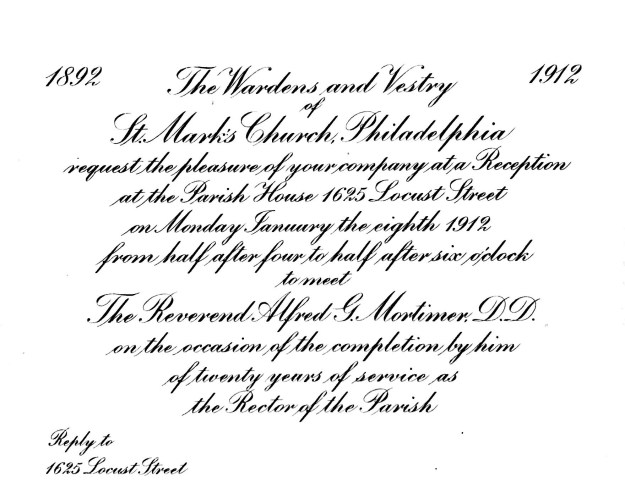 1892 The Wardens and Vestry 1912
of
St. Mark's Church, Philadelphia
request the pleasure of your company at a Reception
at the Parish House 1625 Locust Street
on Monday January the eighth 1912
from half after four to half after six o'clock
to meet
The Reverend Alfred G. Mortimer, D.D.
on the occasion of the completion by him
of twenty years of service as
the Rector of the Parish
Reply to
1625 Locust Street